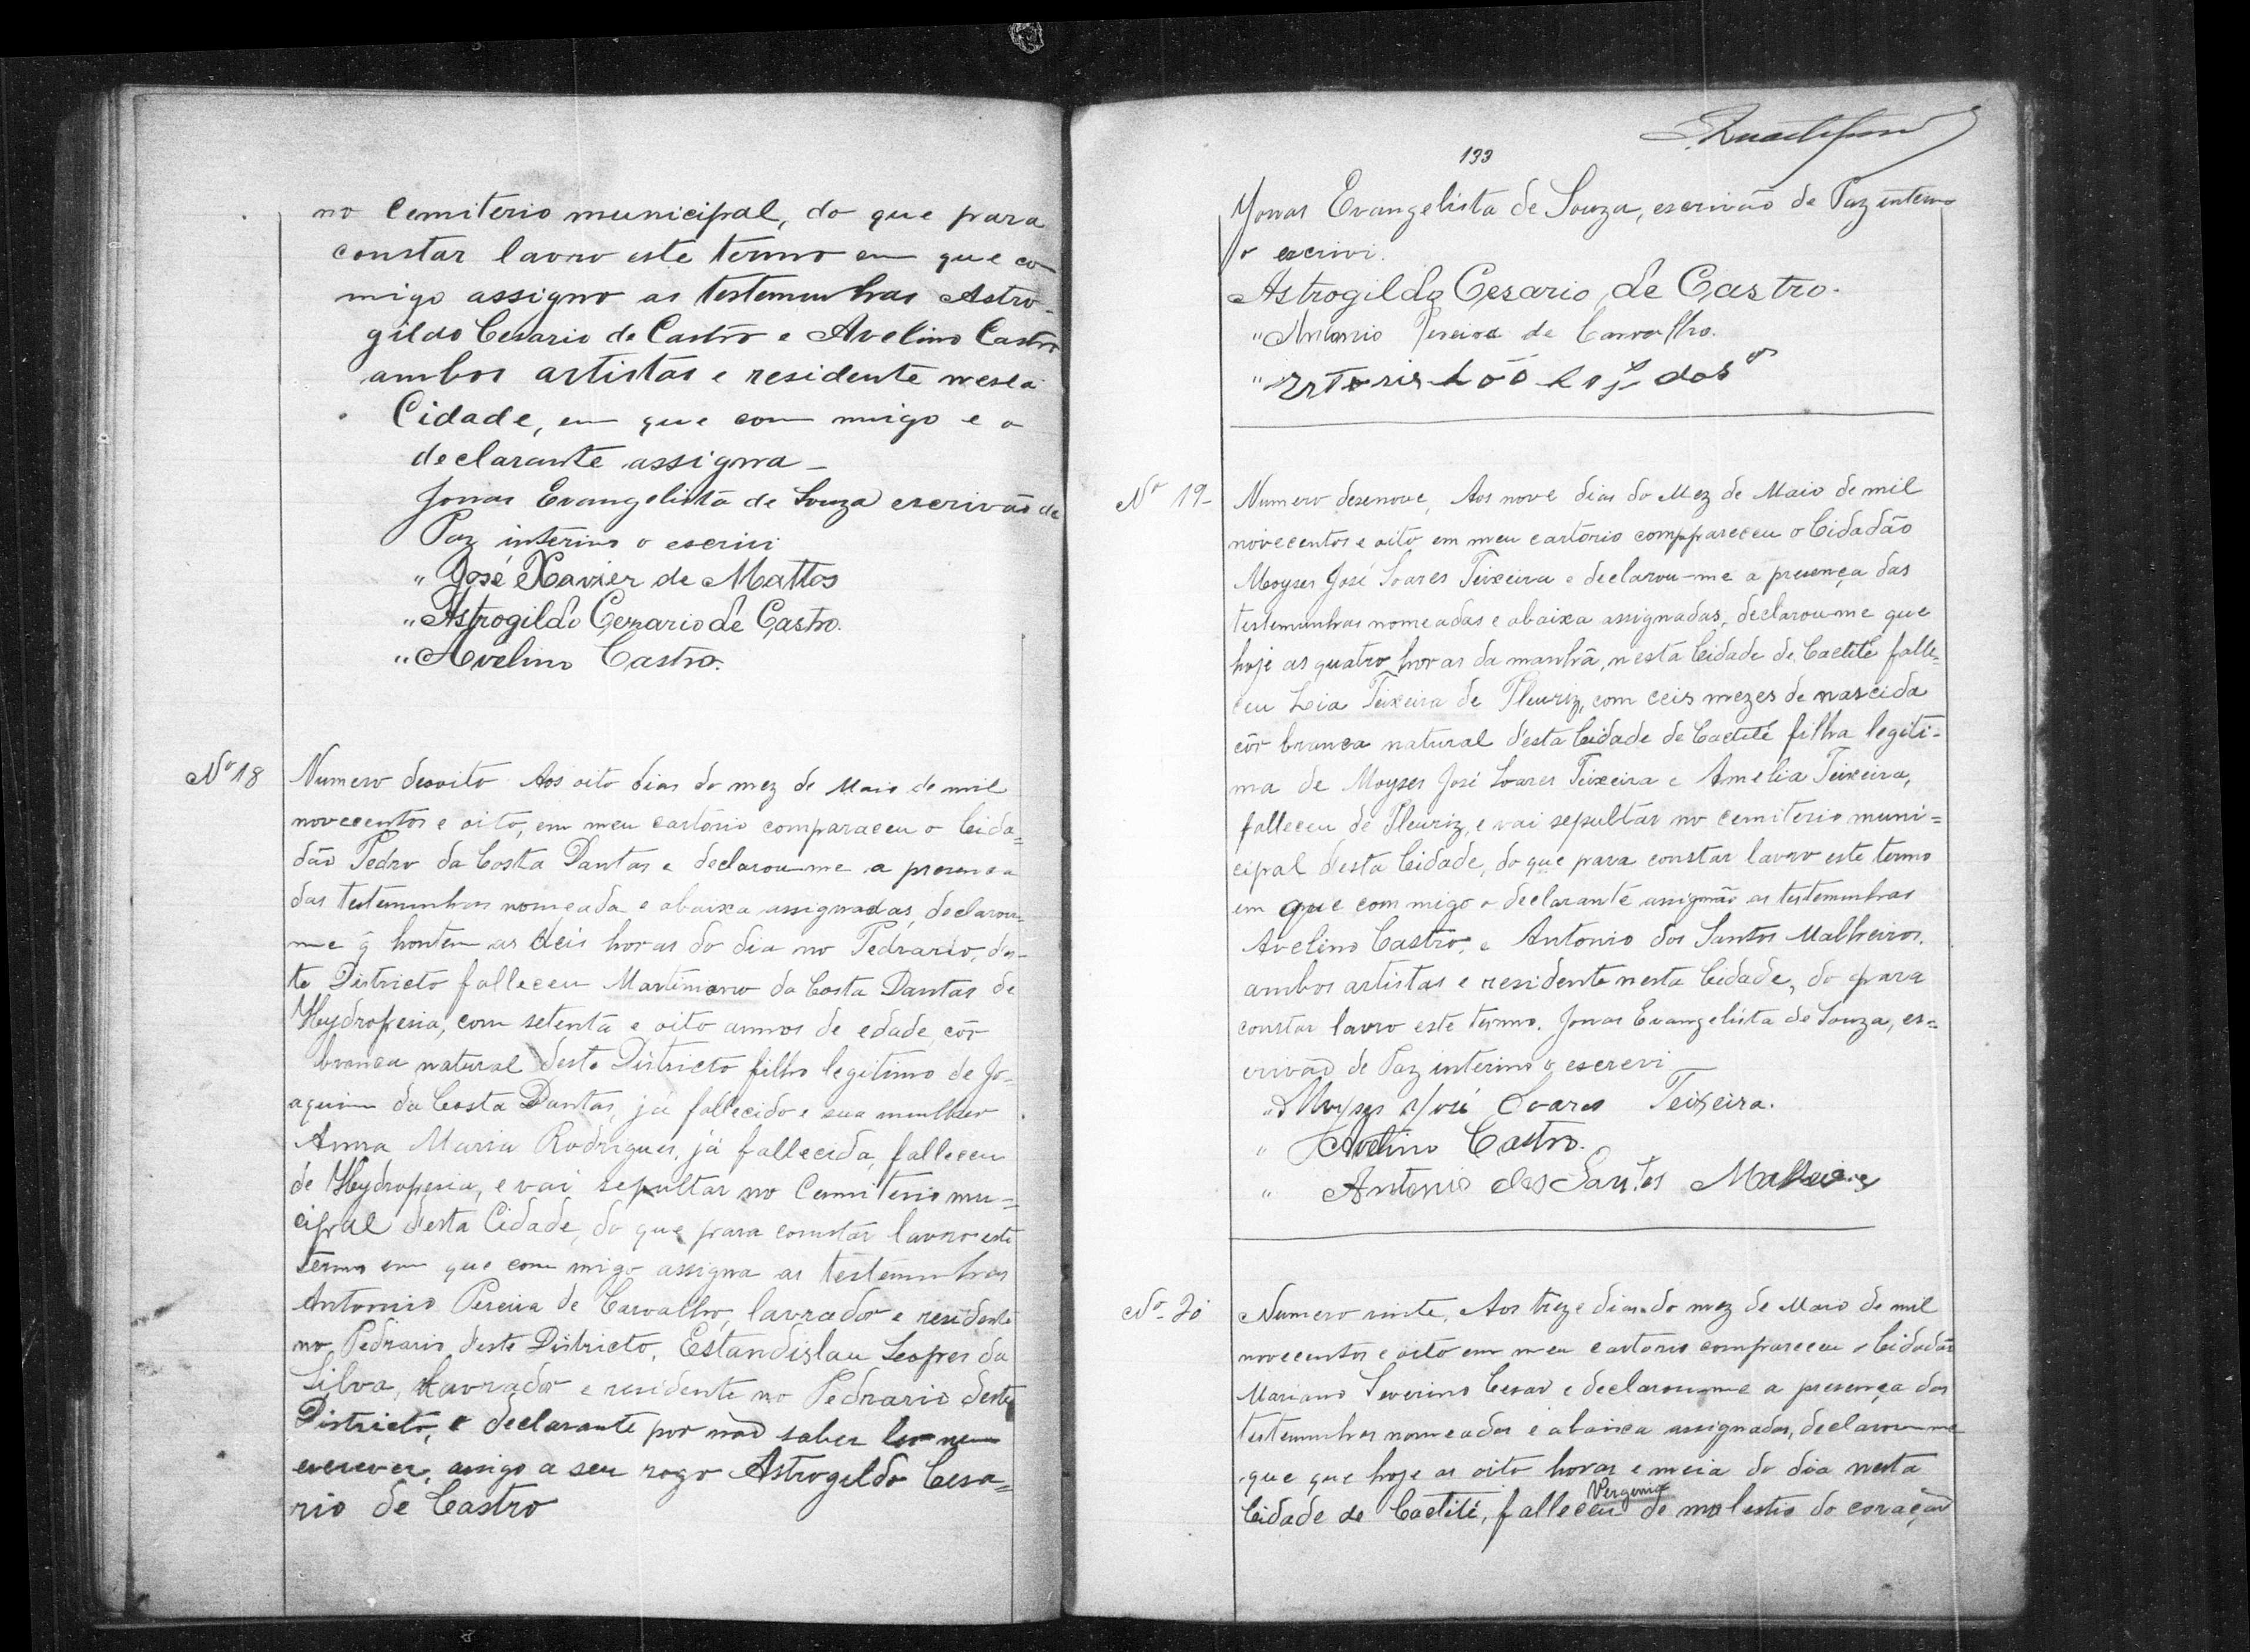 no Cemiterio municipal, do que para
constar lavro este termo em que co
migo assigno as testemunhas Astro-
gildo Cesario de Castro e Avelino Castro
ambos artistas e residente nesta
Cidade, em que com migo e o
declarante assigna_
Jonas Evangelista de Souza escrivão de
Paz interino o escrivi
" José Xavier de Mattos
" Astrogildo Cezario de Castro.
" Avelino Castro.
Nº 18
Numero desoito Aos oito dias do mez de Maio de mil
novecentos e oito, em meu cartorio comparaceu o Cida=
dão Pedro da Costa Dantas e declarou-me a presença
das testemunhas nomeada e abaixa assignadas, declarou=
me q̃ hontem as deis horas do dia no Pedrario, des-
te Districto falleceu Martimano da Costa Dantas de
Hydropesia, com setenta e oito annos de edade, côr
branca natural deste Districto filho legitimo de Jo-
aquim da Costa Dantas, já fallecido e sua mulher
Anna Maria Rodrigues, já fallecida, falleceu
de Hydropesia, e vai sepultar no Cemiterio mu=
cipal desta Cidade, do que para constar lavro este
termo em que com migo assigna as testemunhas
Antonio Pereira de Carvalho, lavrador e residente
no Pedrario deste Districto, Estandislau Lopes da
Silva, lavrador e residente no Pedrario deste
Districto, e declarante por não saber ler nem
escrever, asigo a seu rogo Astrogildo Cesa=
rio de Castro
133
Jonas Evangelista de Souza, escrivão de Paz interino
o escrivi.
Astrogildo Cesario de Castro.
" Antonio Pereira de Carvalho.
Nº 19-
Numero desenove, Aos nove dias do Mez de Maio de mil
novecentos e oito em meu cartorio comppareceu o Cidadão
Moyses José Soares Teixeira e declarou-me a presença das
testemunhas nomeadas e abaixa assignadas, declarou-me que
hoje as quatro horas da manhã, nesta Cidade de Caetité falle=
ceu Leia Teixeira de Pleuriz, com ceis mezes de nascida
côr branca natural d'esta Cidade de Caetité filha legiti=
ma de Moyses José Soares Teixeira e Amelia Teixeira,
falleceu de Pleuriz, e vai sepultar no cemiterio muni=
cipal d'esta Cidade, do que para constar lavro este termo
em que com migo o declarante assignão as testemunhas
Avelino Castro, e Antonio dos Santos Malheiros.
ambos artistas e residente nesta Cidade, do para
constar lavro este termo. Jonas Evangelista de Souza, es=
crivão de Paz interino o escrevi
" Moyses José Soares Teixeira.
" Avelino Castro.
" Antonio dos Santos Malheiros
Nº 20
Numero vinte, Aos treze dias do mez de Maio de mil
novecentos e oito em meu cartorio compareceu o Cidadão
Mariano Severino Cesar e declarou-me a presença das
testemunhas nomeadas e abaixa assignadas, declarou-me
que que hoje as oito horas e meia do dia nesta
Vergenia
Cidade de Caetité, falleceu de molestia do coração